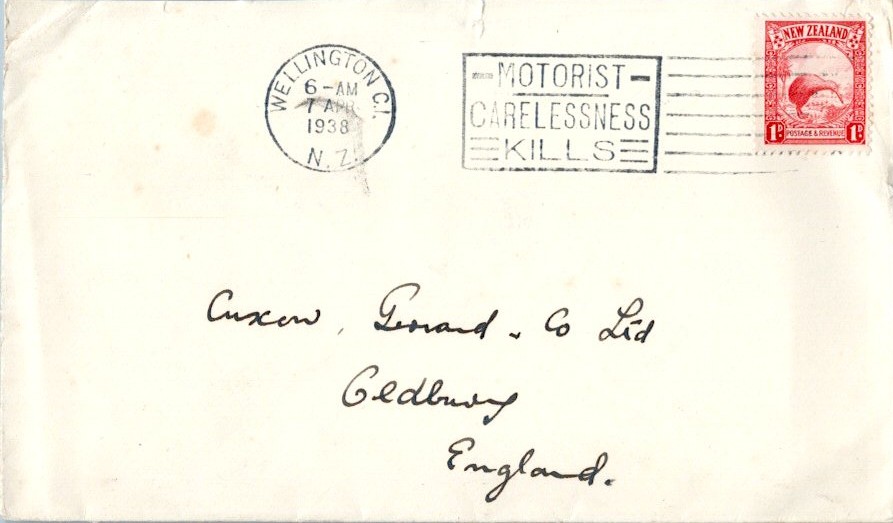 WELLINGTON C.1.
6-AM
7 APR
1938
N.Z.
-MOTORIST-
CARELESSNESS
KILLS
NEW ZEALAND
1D POSTAGE & REVENUE 1D
Cuxson, Gerrard & Co Ltd
Oldbury
England.